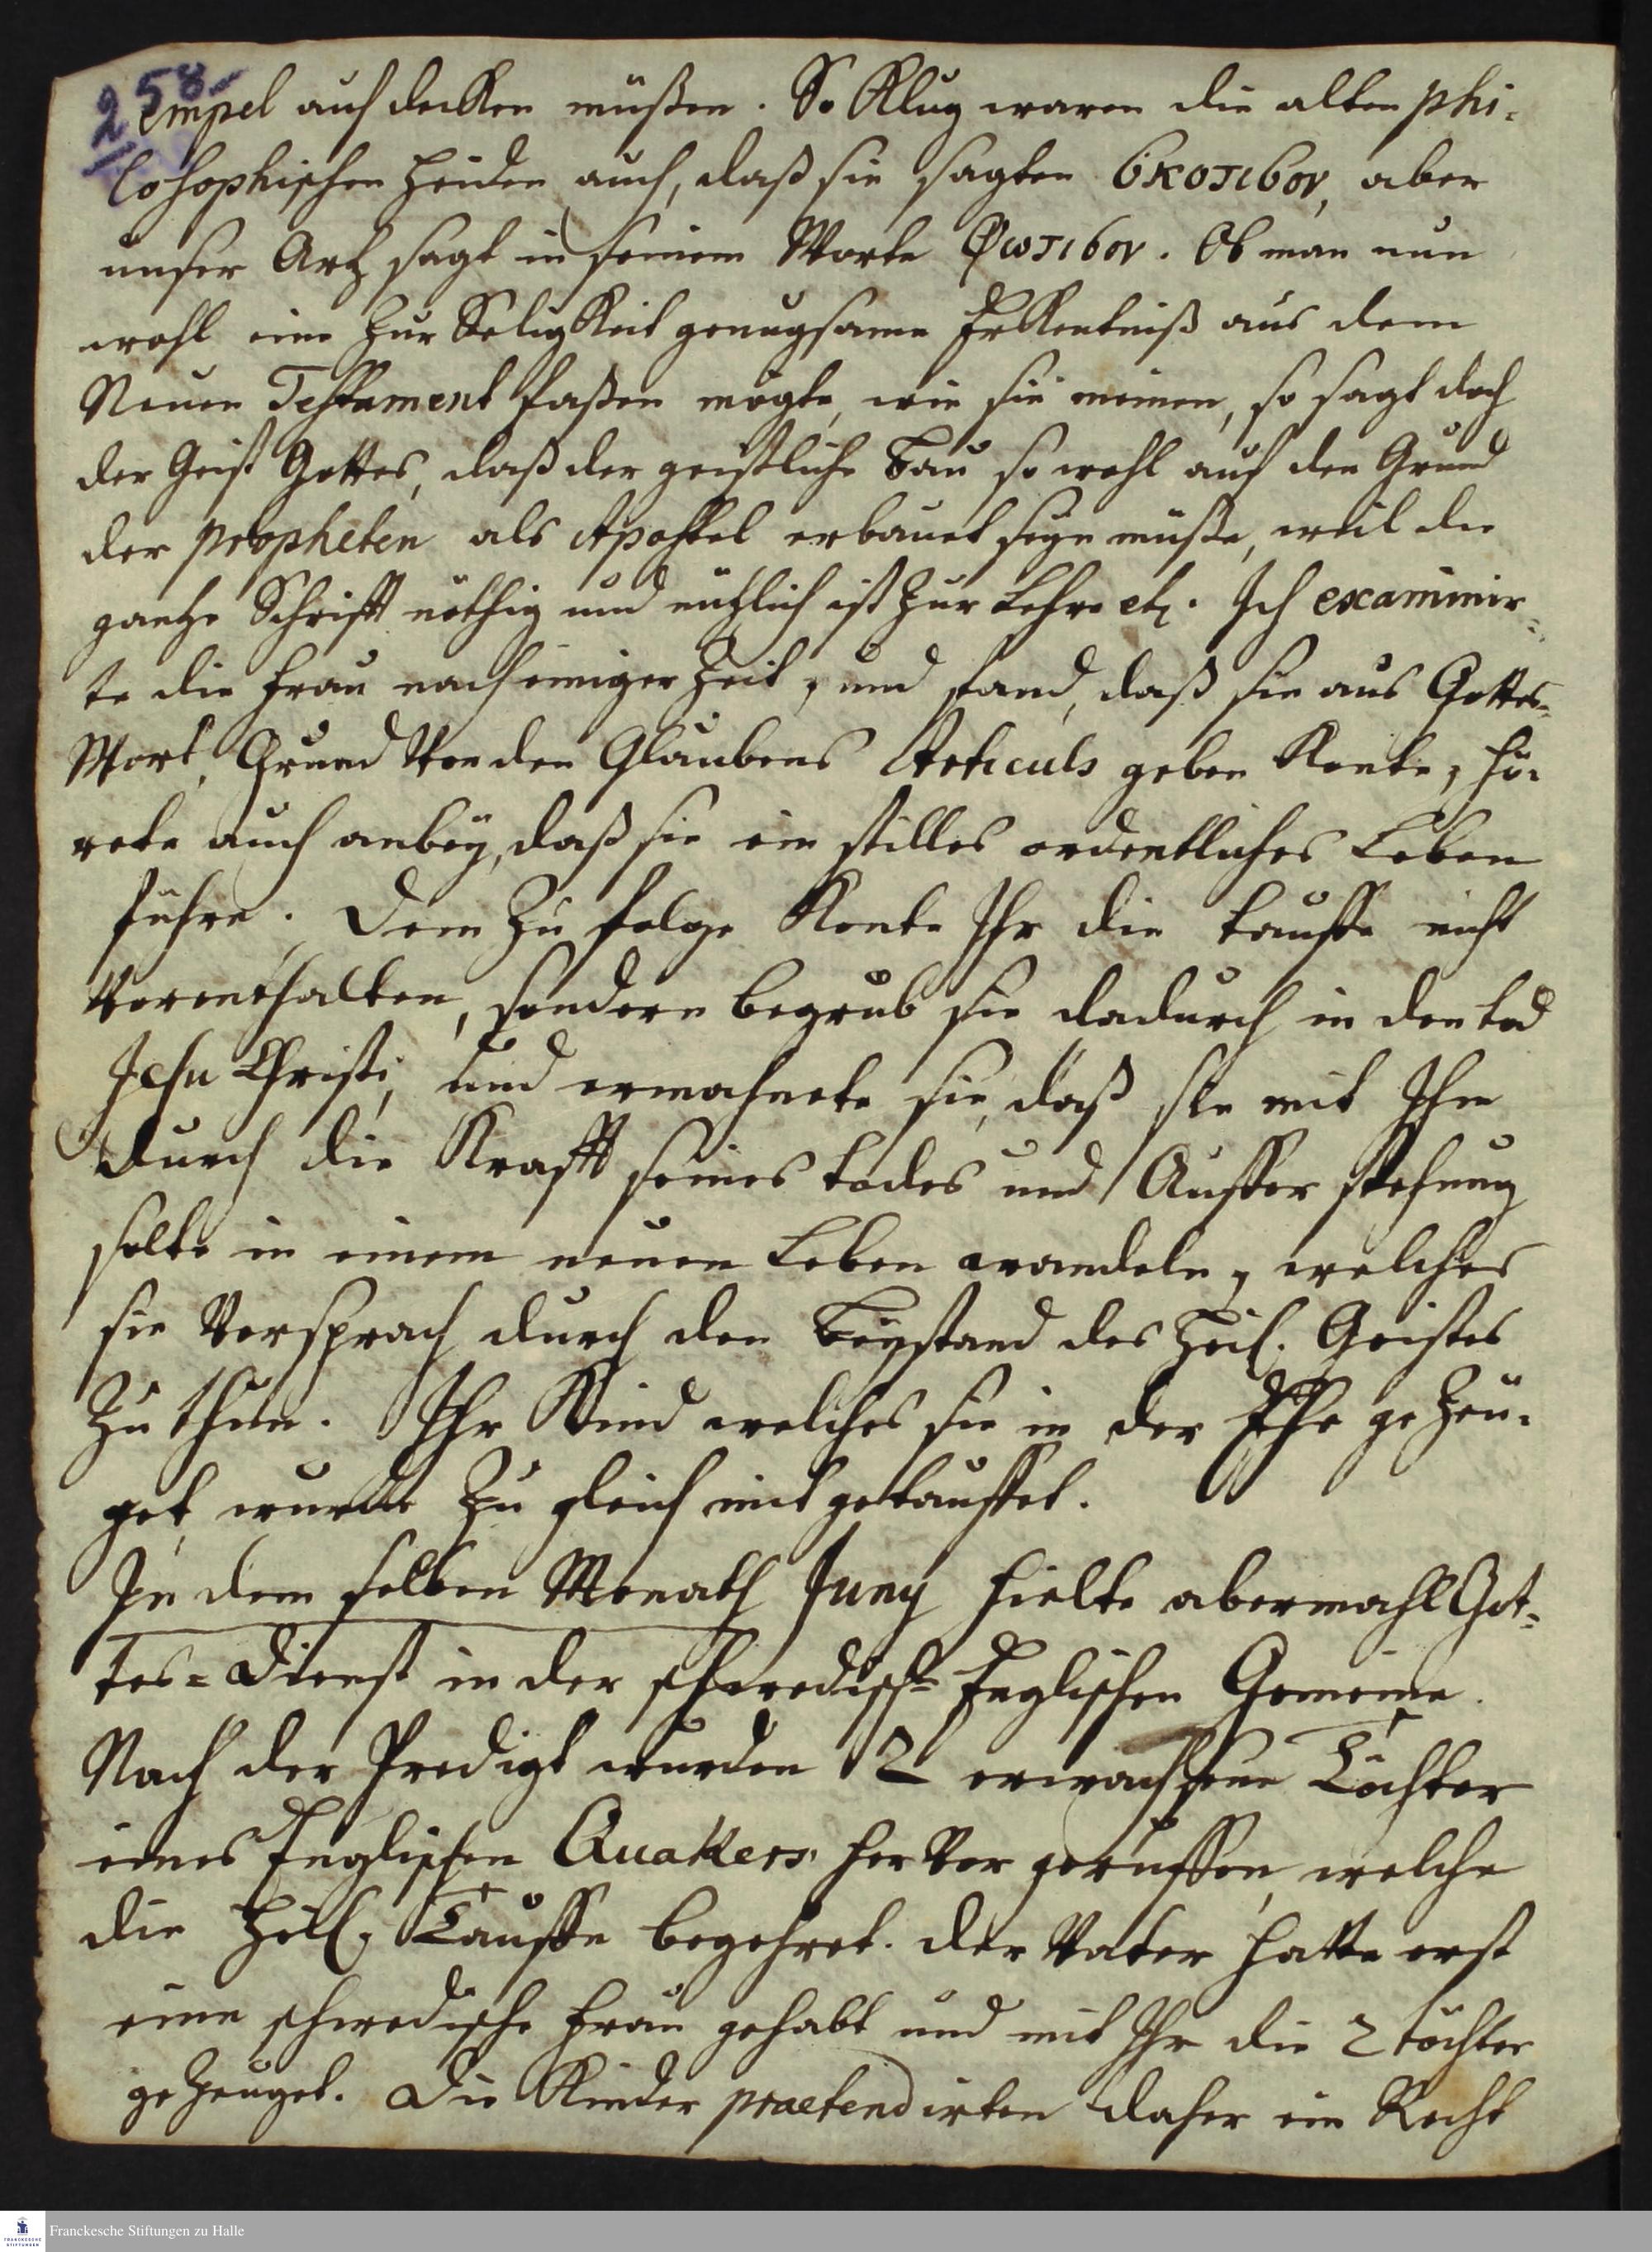 258.
empel aufdecken müßen. So Klug waren die alten phi-
losophischen Heiden auch, daß sie sagten σκοτισον, aber
unser Artz sagt in seinem Worte Φωτισον. Ob man nun
wohl eine zur Seligkeit genugsame Erkentniß aus dem
Neuen Testament faßen mögte, wie sie meinen, so sagt doch
der Geist Gottes, daß der geistliche Bau so wohl auf den Grund
der Propheten als Apostel erbauet seyn müße, weil die
gantze Schrifft nöthig und nützlich ist zur Lehre etc. Ich examinir-
te die Frau nach einiger Zeit, und fand, daß sie aus Gottes-
Wort, Grund Von den Glaubens Articuls geben Konte, hö-
rete auch anbey, daß sie ein stilles ordentliches Leben
führe. Dem zu folge Konte Ihr die tauffe nicht
Vorenthalten, sondern begrub sie dadurch in den tod
Jesu Christi, und ermahnete sie, daß sie mit Ihm
durch die Krafft seines todes und Auffer stehung
solte in einem neuen Leben wandeln, welches
sie Versprach durch den Beystand des Heil. Geistes
zu thun. Ihr Kind welches sie in der Ehe gezeu-
get, wurde zu gleich mit getauffet.
In dem selben Monath Juny hielte abermahl Got-
tes-Dienst in der schwedisch-Englischen Gemeine.
Nach der Predigt wurden 2 erwachsene Töchter
eines Englischen Quakers hervor geruffen, welche
die Heil. Tauffe begehret. der Vater hatte erst
eine schwedische Frau gehabt und mit Ihr die 2 töchter
gezeuget. Die Kinder praetendirten daher ein Recht
Franckesche Stiftungen zu Halle
FRANCKESCHE
STIFTUNGEN